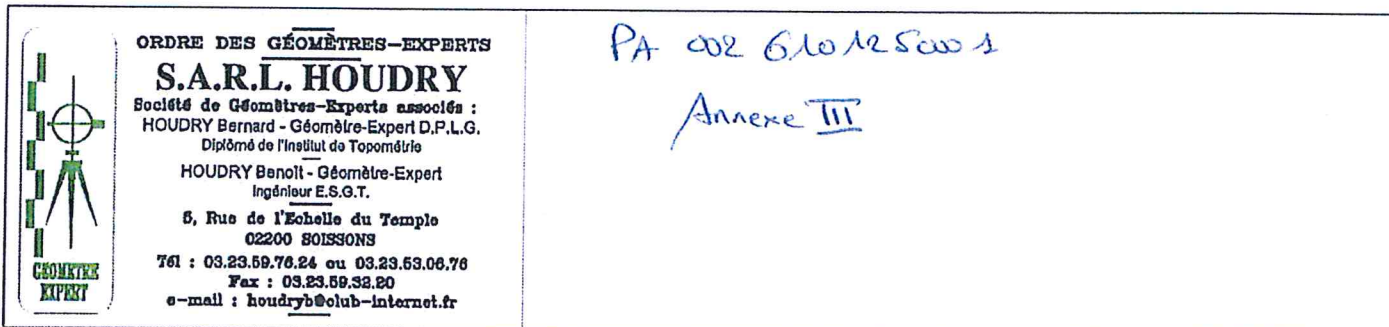 ORDRE DES GÉOMÈTRES-EXPERTS
S.A.R.L. HOUDRY
Société de Géomètres-Experts associés :
HOUDRY Bernard - Géomètre-Expert D.P.L.G.
Diplômé de l'Institut de Topométrie
HOUDRY Benoît - Géomètre-Expert
Ingénieur E.S.G.T.
5, Rue de l'Echelle du Temple
02200 SOISSONS
Tél : 03.23.59.76.24 ou 03.23.53.06.76
Fax : 03.23.59.32.20
e-mail : houdryb@club-internet.fr
GÉOMETRE
EXPERT
PA 002 610 12 5000 1
Annexe III